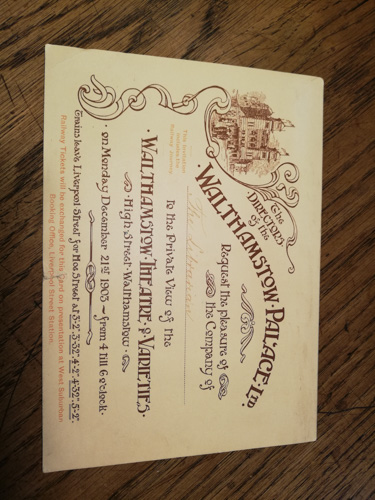 The
Directors
of the
Walthamstow·Palace·Ltd.
Request the pleasure of
the Company of
The Librarian
to the Private View of the
This Invitation
includes the
Railway Journey.
·Walthamstow·Theatre·of·Varieties·
·High·Street·Walthamstow·
·on Monday December 21st 1903 ~ from 4 till 6 o'clock·
Trains leave Liverpool Street for Hoe Street at 3·2", 3·32", 4·2", 4·32", 5·2".
Railway Tickets will be exchanged for this Card on presentation at West Suburban
Booking Office, Liverpool Street Station.